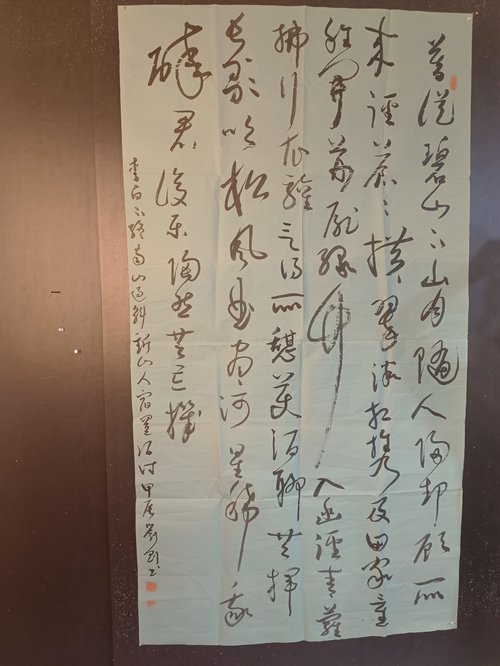 暮從碧山下山月隨人歸却顧所
來徑蒼々橫翠微相攜及田家童
稚開荊扉綠竹入幽徑青蘿
拂行衣歡言得所憩美酒聊共揮
長歌吟松風曲盡河星稀我
醉君復樂陶然共忘機
李白下終南山過斛斯山人宿置酒詩 甲辰 书